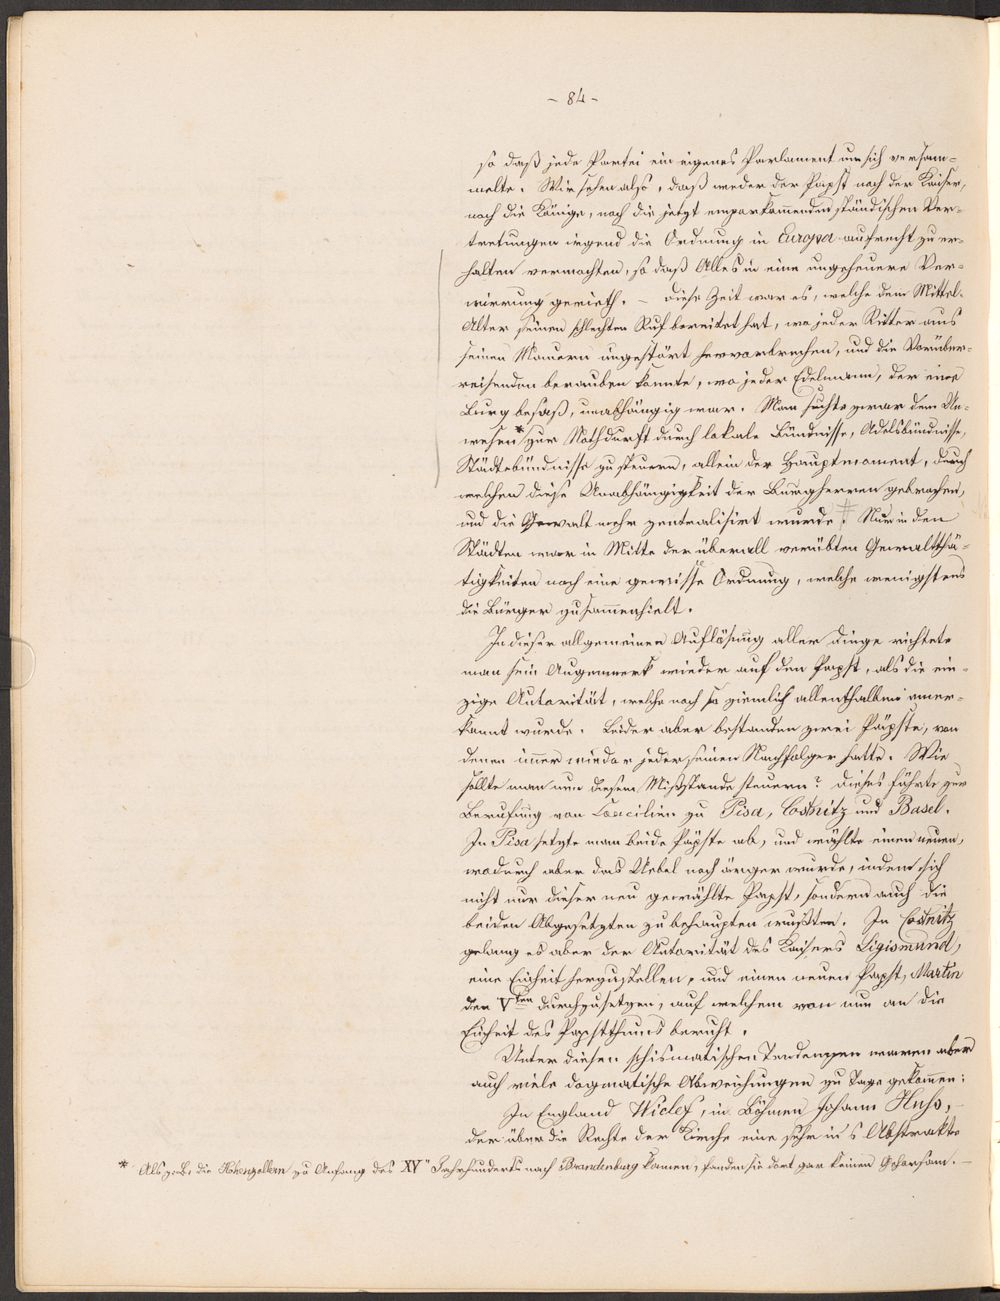 - 84 -
so daß jede Partei ein eigenes Parlament um sich versam=
melte. Wir sehen also, daß weder der Papst noch der Kaiser,
noch die Könige, noch die jetzt emporkommenden ständischen Ver=
tretungen irgend die Ordnung in Europa aufrecht zu er=
halten vermochten, so daß Alles in eine ungeheuere Ver=
wirrung gerieth. – Diese Zeit war es, welche dem Mittel-
Alter seinen schlechten Ruf bereitet hat, wo jeder Ritter aus
seinen Mauern ungestört hervorbrechen, und die Vorüber=
reisenden berauben konnte, wo jeder Edelmann, der eine
Burg besaß, unabhängig war. Man suchte zwar dem Un=
wesen* zur Nothdurft durch lokale Bündnisse, Adelsbündnisse,
Städtebündnisse zu steuern, allein der Hauptmoment, durch
welchen diese Unabhängigkeit der Burgherren gebrochen,
und die Gewalt mehr zentralisirt wurde #. Nur in den
Städten war in Mitte der überall verübten Gewaltthä=
tigkeiten noch eine gewisse Ordnung, welche wenigstens
die Bürger zusammenhielt.
In dieser allgemeinen Auflösung aller Dinge richtete
man sein Augenmerk wieder auf den Papst, als die ein=
zige Autorität, welche noch so ziemlich allenthalben aner=
kannt wurde. Leider aber bestanden zwei Päpste, von
denen immer wieder jeder seinen Nachfolger hatte. Wie
sollte man nun diesem Mißstande steuern? Dieses führte zur
Berufung von Concilien zu Pisa, Costnitz und Basel.
In Pisa setzte man beide Päpste ab, und wählte einen neuen,
wodurch aber das Uebel noch ärger wurde, indem sich
nicht nur dieser neu gewählte Papst, sondern auch die
beiden Abgesetzten zu behaupten wußten. In Costnitz
gelang es aber der Autorität des Kaisers Sigismund,
eine Einheit herzustellen, und einen neuen Papst, Martin
den Vten durchzusetzen, auf welchem von nun an die
Einheit des Papstthums beruht.
Unter diesen schismatischen Tendenzen waren aber
auch viele dogmatische Abweichungen zu Tage gekommen:
In England Wiclef, in Böhmen Johann Huss,
der über die Rechte der Kirche eine sehr in's Abstrakte
* Als z. B. die Hohenzollern zu Anfang des XV" Jahrhunderts nach Brandenburg kamen, fanden sie dort gar keinen Gehorsam. –